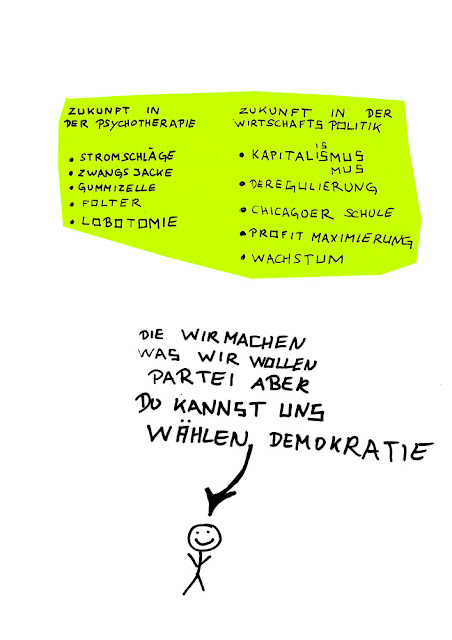 ZUKUNFT IN
DER PSYCHOTHERAPIE
• STROMSCHLÄGE
• ZWANGSJACKE
• GUMMIZELLE
• FOLTER
• LOBOTOMIE
ZUKUNFT IN DER
WIRTSCHAFTSPOLITIK
IS
• KAPITALISMUS
MUS
• DEREGULIERUNG
• CHICAGOER SCHULE
• PROFIT MAXIMIERUNG
• WACHSTUM
DIE WIR MACHEN
WAS WIR WOLLEN
PARTEI ABER
DU KANNST UNS
WÄHLEN DEMOKRATIE